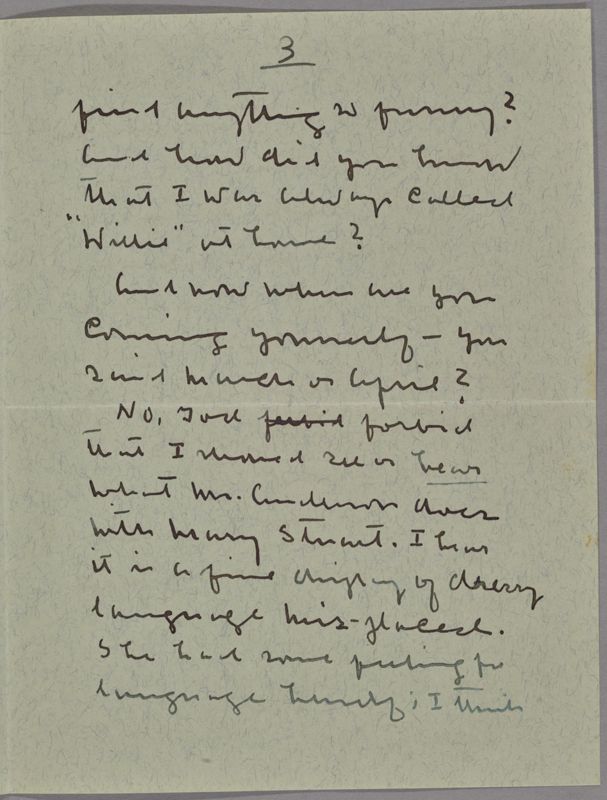 3
find anything so funny?
And how did you know
that I was always called
"Willie" at home?
And now when are you
coming yourself – you
said March or April?
No, God forbid forbid
that I should see or hear
what Mr. Anderson does
with Mary Stuart. I hear
it is a fine display of dressy
language mis-placed.
She had some feeling for
language herself; I think